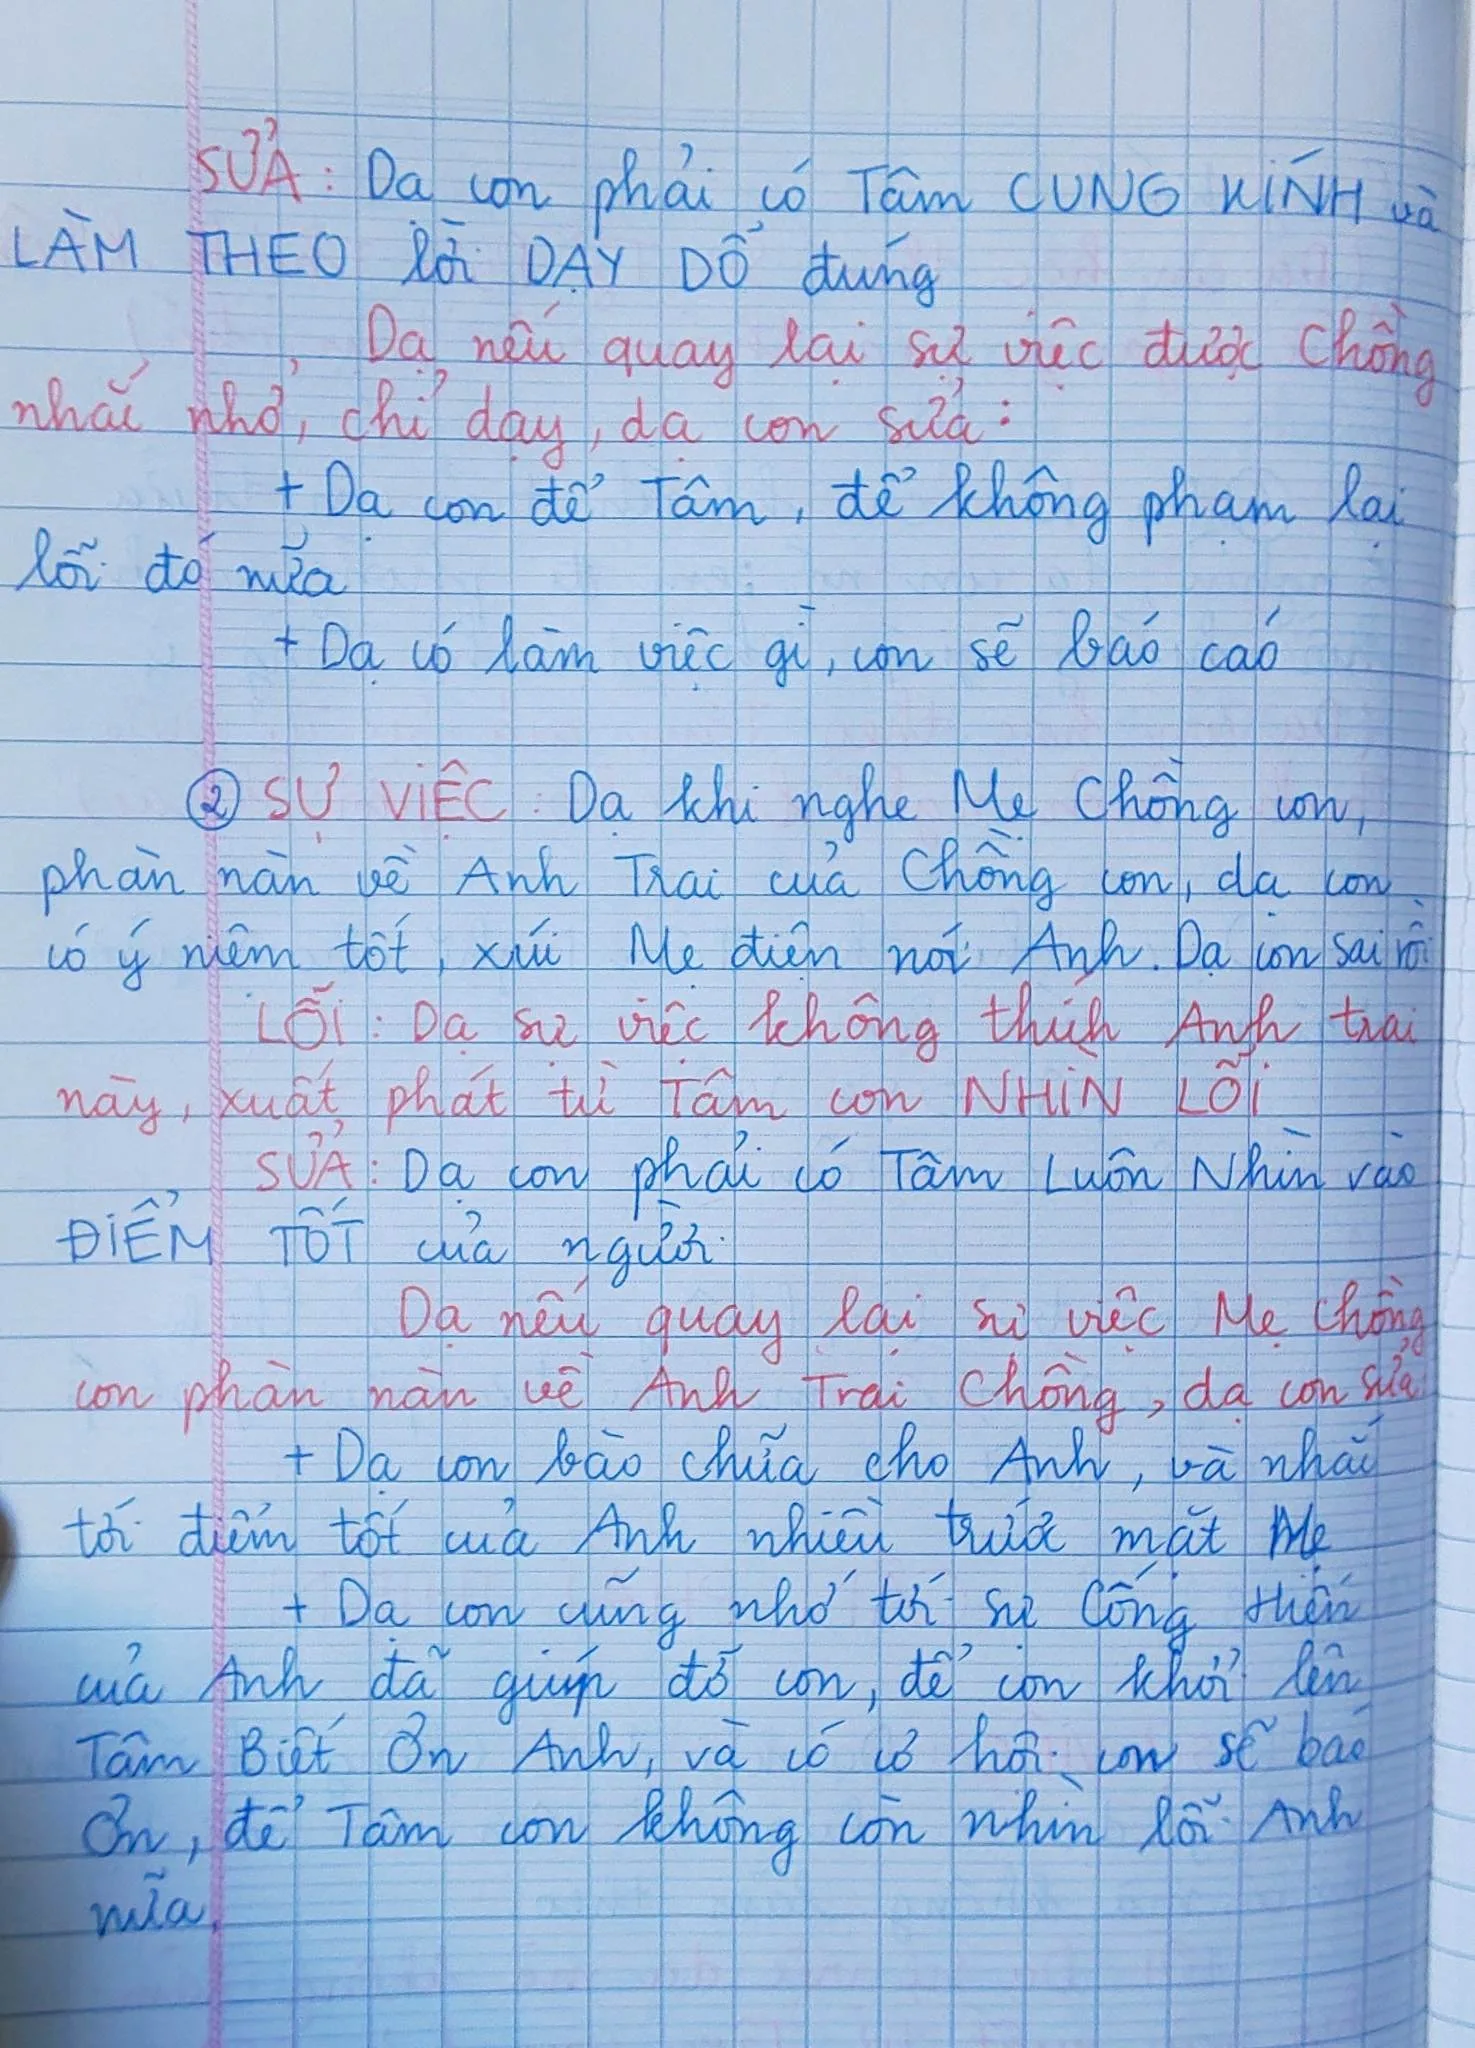 SỬA: Dạ con phải có Tâm CUNG KÍNH và
LÀM THEO lời DẠY DỖ đúng
Dạ nếu quay lại sự việc được Chồng
nhắc nhở, chỉ dạy, dạ con sửa:
+ Dạ con để Tâm, để không phạm lại
lỗi đó nữa
+ Dạ có làm việc gì, con sẽ báo cáo
② SỰ VIỆC: Dạ khi nghe Mẹ Chồng con,
phàn nàn về Anh Trai của Chồng con, dạ con
có ý niệm tốt, xúi Mẹ điện nói Anh. Dạ con sai rồi
LỖI: Dạ sự việc không thích Anh trai
này, xuất phát từ Tâm con NHÌN LỖI
SỬA: Dạ con phải có Tâm Luôn Nhìn vào
ĐIỂM TỐT của người
Dạ nếu quay lại sự việc Mẹ Chồng
con phàn nàn về Anh Trai Chồng, dạ con sửa
+ Dạ con bào chữa cho Anh, và nhắc
tới điểm tốt của Anh nhiều trước mặt Mẹ
+ Dạ con cũng nhớ tới sự Cống Hiến
của Anh đã giúp đỡ con, để con khởi lên
Tâm Biết Ơn Anh, và có cơ hội con sẽ báo
Ơn, để Tâm con không còn nhìn lỗi Anh
nữa.